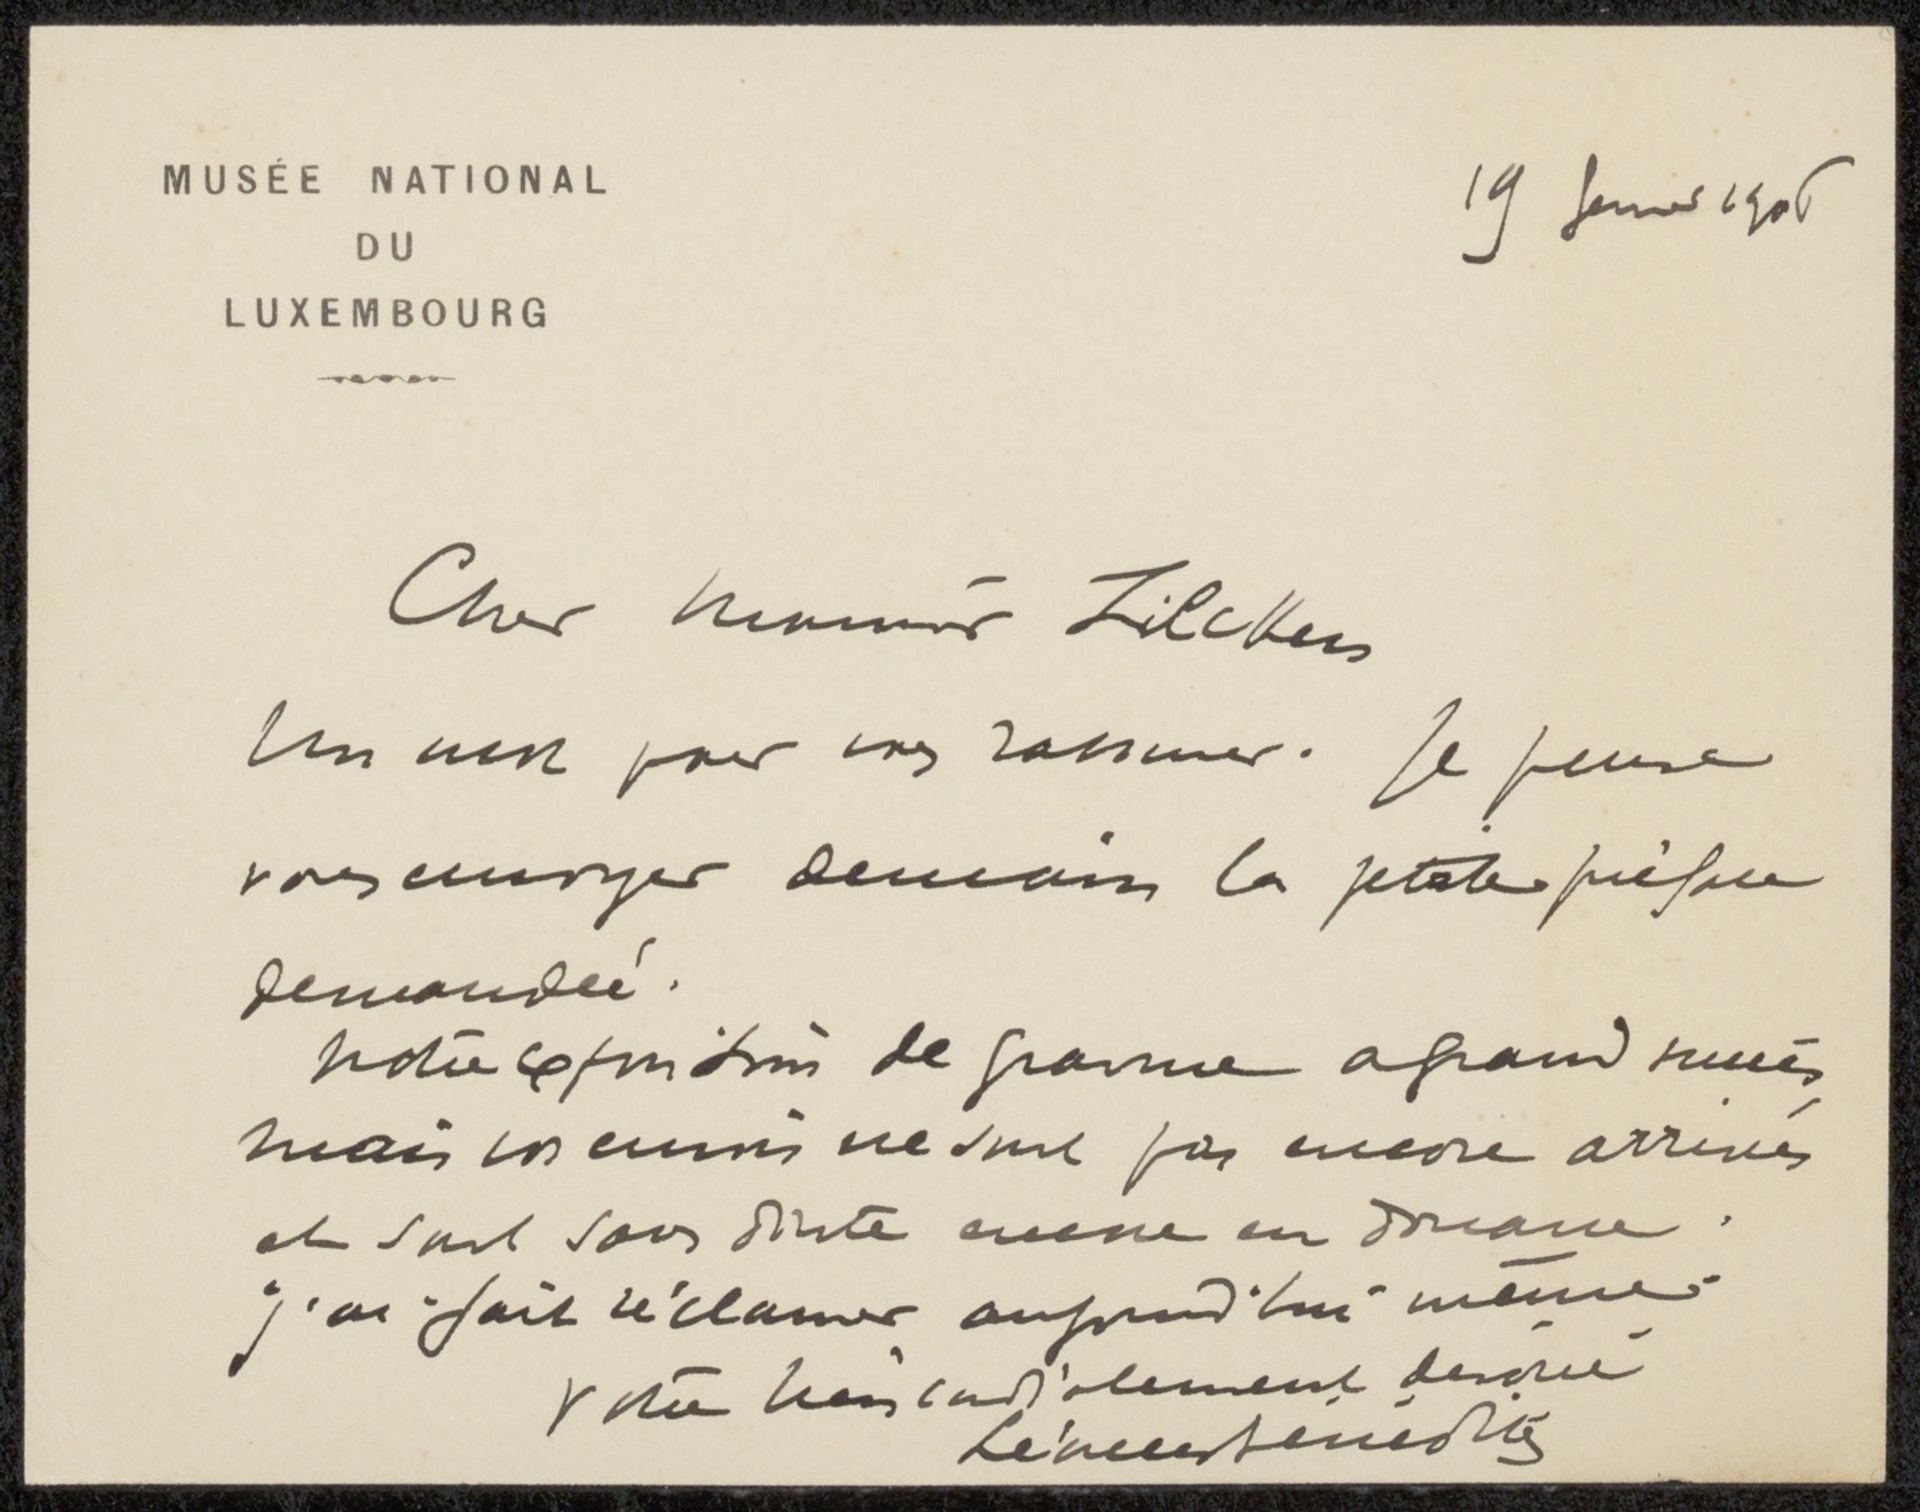 MUSÉE NATIONAL
DU
LUXEMBOURG
19 1906
Cher Monsieur Zilcken
Un mot pour vous rassurer. Je pense
vous envoyer demain la petite préface
demandée.
Notre exposition de gravure a grand succès
mais vos envois ne sont pas encore arrivés
et sont sans doute encore en douane.
j'ai fait réclamer aujourd'hui même.
votre très cordialement dévoué
Léonce Bénédite